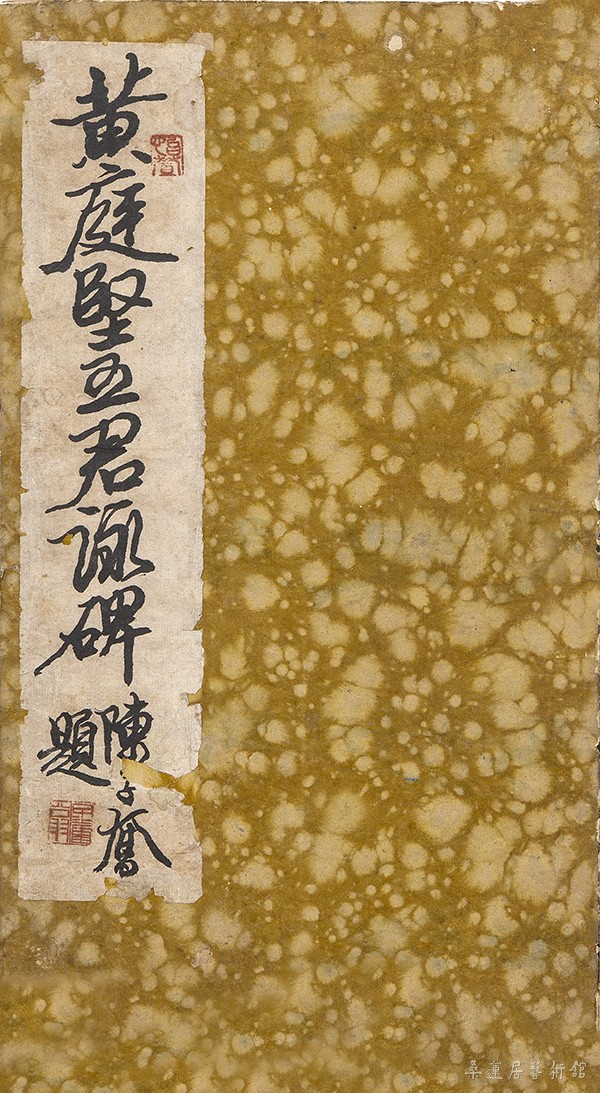 黄庭堅五君詠碑
陳子奮
題
桑蓮居藝術館